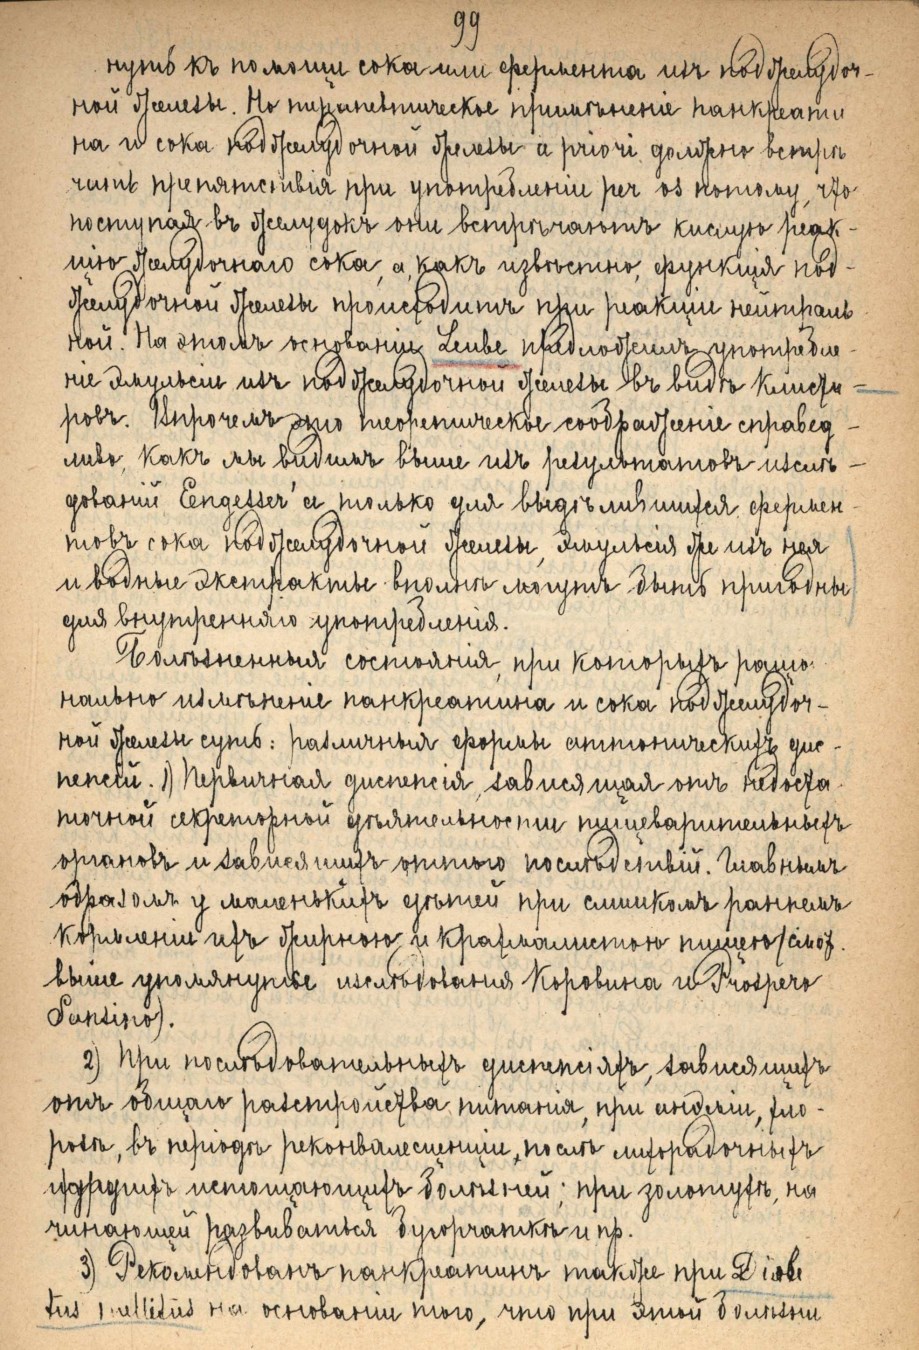 99
нуть къ помощи сока или фермента изъ поджелудоч-
ной железы. Но терапевтическое примѣненіе панкреати
на и сока поджелудочной железы a priori должно встрѣ
чать препятствія при употребленіи per os потому, что
поступая въ желудокъ они встрѣчаютъ кислую реак-
цію желудочнаго сока, а, какъ извѣстно, функція под-
желудочной железы происходитъ при реакціи нейтраль
ной. На этомъ основаніи Leube предложилъ употребле-
ніе эмульсіи изъ поджелудочной железы въ видѣ клисти-
ровъ. Впрочемъ это теоретическое соображеніе справед-
ливо, какъ мы видимъ выше изъ результатовъ изслѣ-
дованій Engesser'а только для выдѣлившихся фермен-
товъ сока поджелудочной железы, эмульсія же изъ нея
и водные экстракты вполнѣ могутъ быть пригодны
для внутренняго употребленія.
Болѣзненныя состоянія, при которыхъ раціо
нально измѣненіе панкреатина и сока поджелудоч-
ной железы суть: различныя формы аттоническихъ дис-
пепсій. 1) Первичная диспепсія, зависящая отъ недоста
точной секреторной дѣятельности пищеварительныхъ
органовъ и зависящихъ оттого послѣдствій. Главнымъ
образомъ у маленькихъ дѣтей при слишкомъ раннемъ
кормленіи ихъ жирною и крахмалистою пищею (смот.
выше упомянутые изслѣдованія Коровина и Prospero
Sonsino).
2) При послѣдовательныхъ диспепсіяхъ, зависящихъ
отъ общаго разстройства питанія, при анэміи, хло-
розѣ, въ періодѣ реконвалесценціи, послѣ лихорадочныхъ
и другихъ истощающихъ болѣзней; при золотухѣ, на
чинающей развиваться бугорчаткѣ и пр.
3) Рекомендованъ панкреатинъ также при Diabe
tus mellitus на основаніи того, что при этой болѣзни